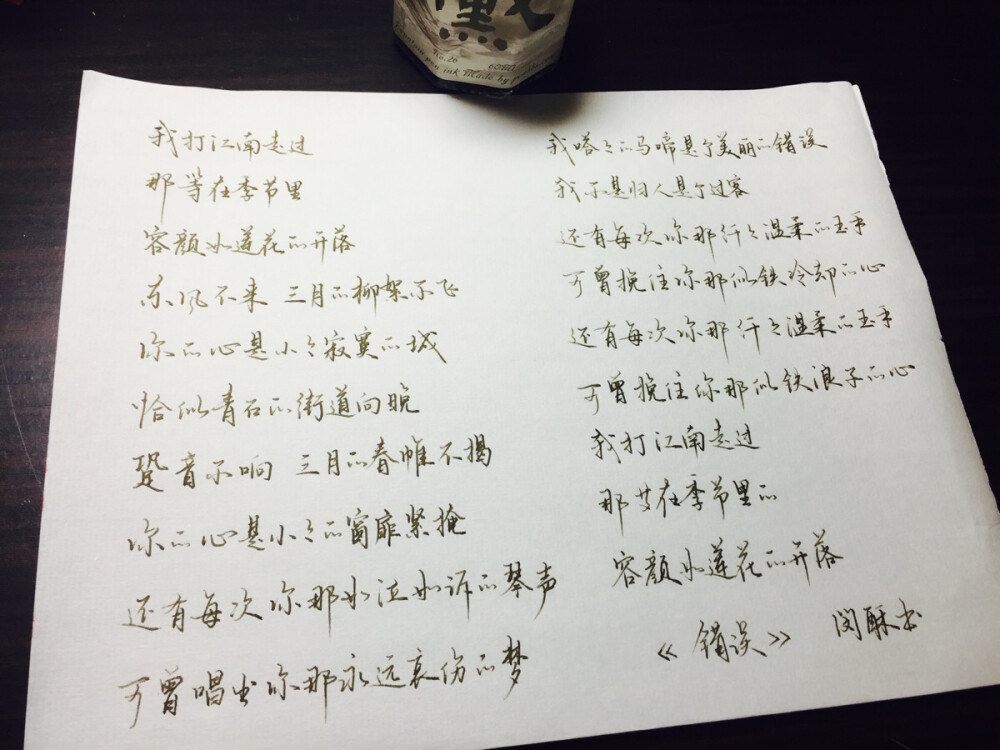 No.26
ink Made by
我打江南走过
那等在季节里
容颜如莲花的开落
东风不来 三月的柳絮不飞
你的心是小々寂寞的城
恰似青石的街道向晚
跫音不响 三月的春帷不揭
你的心是小々的窗扉紧掩
还有每次你那如泣如诉的琴声
可曾唱出你那永远哀伤的梦
我嗒々的马啼是个美丽的错误
我不是归人是个过客
还有每次你那仟々温柔的玉手
可曾挽住你那似铁冷却的心
还有每次你那仟々温柔的玉手
可曾挽住你那似铁浪子的心
我打江南走过
那等在季节里的
容颜如莲花的开落
《错误》 闵酥书